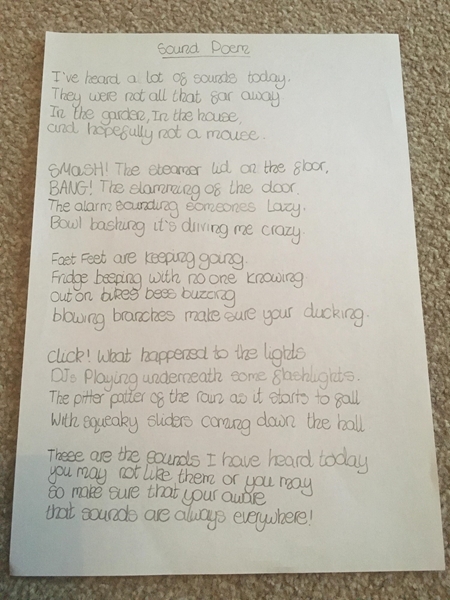 Sound Poem
I've heard a lot of sounds today.
They were not all that far away
In the garden, In the house,
and hopefully not a mouse.
SMaSH! The steamer lid on the floor,
BANG! The slamming of the door.
The alarm sounding someones Lazy.
Bowl bashing it's driving me crazy.
Fast Feet are keeping going.
Fridge beeping with no one knowing
out on bikes bees buzzing
blowing branches make sure your ducking.
Click! What happened to the lights
DJs Playing underneath some flashlights.
The pitter patter of the rain as it starts to fall
With squeaky sliders coming down the hall
These are the sounds I have heard today
you may not like them or you may
so make sure that your aware
that sounds are always everywhere!